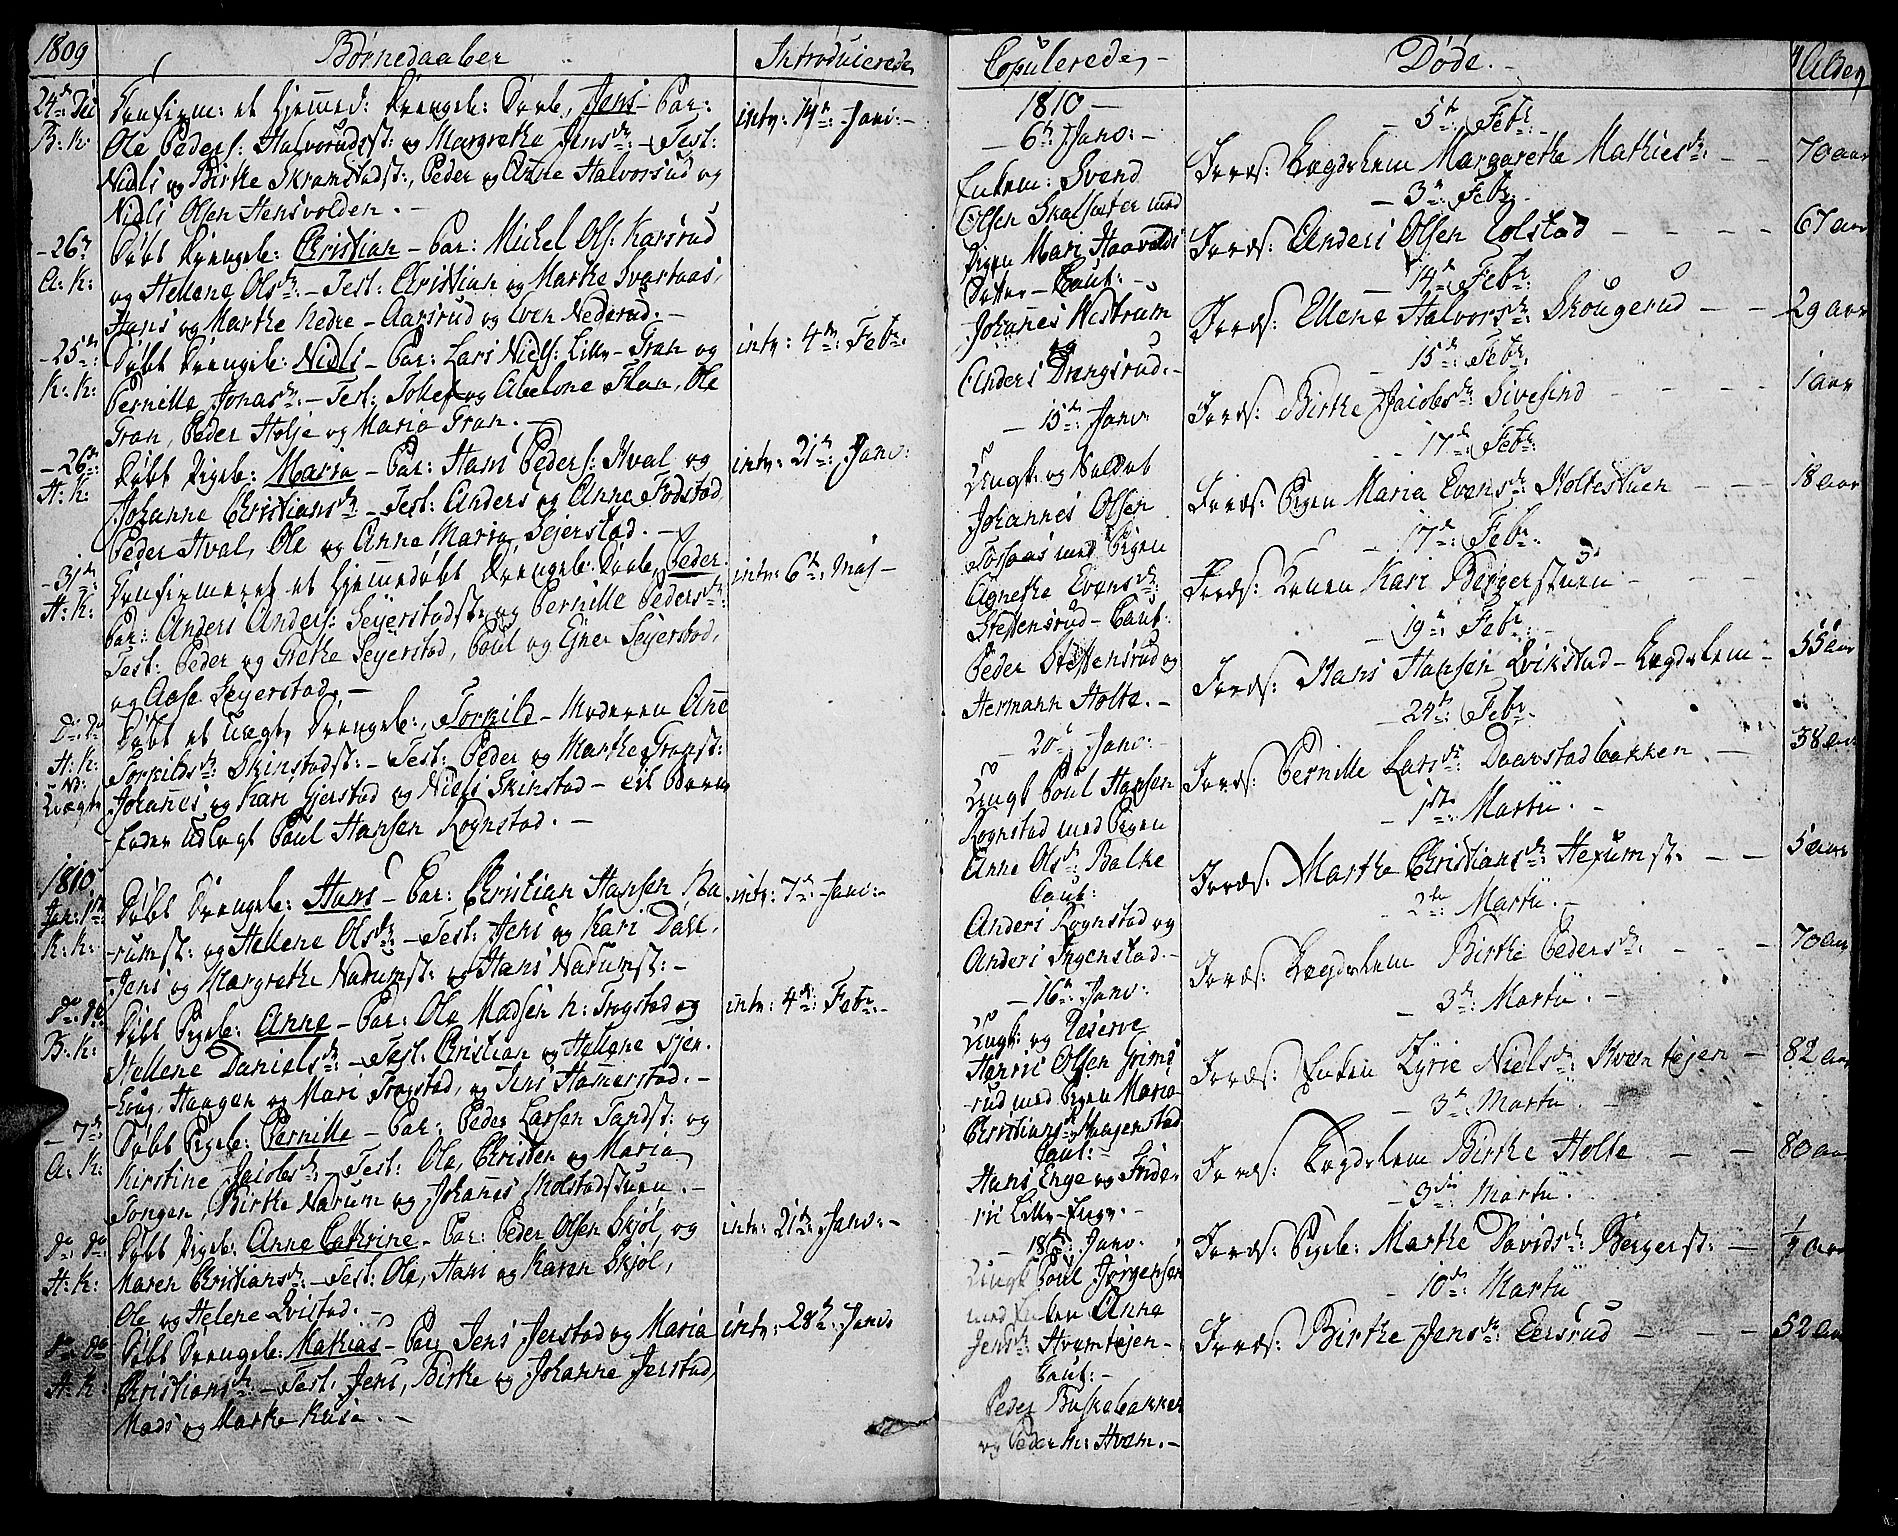 1809
Børnedaaber
Introducerede
24de Dec
B: K:
Confirm: et hjemmed: Drengeb: Døbt, Jens - Par:
Ole Peders: Halvorudst: og Margrethe Jensd: - Test:
Niels og Birthe Skramstadst:, Peder og Anne Halvorsrud og
Niels Olsen Hensvolden. -
intr: 14de Janv: -
- 26de
A: K:
Døbt Drengeb: Christian - Par: Michel Ols: Karsrud
og Hellene Olsd: - Test: Christian og Marthe Svartaas,
Hans og Marthe Nedre - Aarsrud og Even Nederud. -
- 25de:
K: K:
Døbt Drengeb: Niels - Par: Lars Niels: Lille - Tran og
Pernille Jonasd: - Test: Tollef og Abelone Flaa, Ole
Tran, Peder Holje og Maria Tran. -
intr: 4de: Febr:
- 26de:
H: K:
Døbt Pigeb: Maria - Par: Hans Peders: Hval og
Johanne Christiansd: - Test: Anders og Anne Fodstad
Peder Hval, Ole og Anne Maria Sejerstad. -
intr: 21de: Janv:
- 31de:
H: K:
Confirmeret et hjemmedøbt Drengeb: Døbt, Peder.
Par: Anders Anders: Seyerstadst: og Pernille Pedersd:
Test: Peder og Grethe Seyerstad, Poul og Ejner Seyerstad,
og Aase Seyerstad, -
intr: 6te: Maj -
Do: do
H: K:
Nb:
Uægte
Døbt et Uægte Drengeb:, Torkild - Moderen Ane
Torkildsd: Skinstadst: - Test: Peder og Marthe Transt:
Johanes og Kari Gjerstad og Niels Skinstad - til Barne
fader Udlagt Poul Hansen Rognstad. -
1810
Jan: 1te
K: K:
Døbt Drengeb: Hans - Par: Christian Hansen Na
-rumst: og Hellene Olsd: - Test: Jens og Kari Dahl,
Jens og Margrethe Narumst: og Hans Narumst: -
intr: 7de: Janv: -
do: do
B: K:
Døbt Pigeb: Anne - Par: Ole Madsen N: Trogstad og
Hellene Danielsd: - Test: Christian og Hellene Gjer-
-Haagen og Mari Trogstad, og Jens Hamerstad. -
intr: 4de: Febr: -
- 7de:
A: K:
Døbt Pigeb: Pernille - Par: Peder Larsen Sandst: og
Kirstine Jacobsd: - Test: Ole, Christen og Maria
Tongen, Birthe Narum og Johanes Molstadstuen. -
do: do
H: K:
Døbt Pigeb: Anne Cathrine - Par: Peder Olsen Skjøl, og
Maren Christiansd: - Test: Ole, Hans og Karen Skjøl,
Ole og Helene Qvistad. -
intr: 21de: Janv: -
do: do
H: K:
Døbt Drengeb: Mathias - Par: Jens Jerstad og Maria
Christiansd: - Test: Jens, Birthe og Johanne Jerstad,
Mads og Marthe Kuse. -
intr: 28de: Janv:
Copulerede, -
1810 -
- 6te Janv: -
Enkem: Svend
Olsen Skalsæter med
Pigen Mari Haavolds
Datter - Caut: -
Johanes Westrum
og
Anders Drengsrud. -
- 15de: Janv:
Ungk: og Soldat
Johannes Olsen
Tosaas med Pigen
Agnethe Evensd:
Steffensrud - Caut:
Peder Steffensrud og
Hermann Holte. -
- 20de Janv: -
Ungk Poul Hansen
Rognstad med Pigen
Anne Olsd: Balke
Caut:
Anders Rognstad og
Anders Ingenstad. -
- 16de: Janv:
Ungk: og Reserve
Henric Olsen Grims
rud med Pigen Maria
Christiansd: Haagenstad
Caut: -
Hans Enge og Fride-
ric Lille-Enge. -
- 18de: Janv:
Ungk Poul Jørgensen
med Enken Anne
Jensd: Hvamtejen -
Caut: -
Peder Buskebakken
og Peder N: Hvam. -
Døde. -
Alder
- 5te: Febr: -
Jords: Lægdslem Margarethe Mathiesd: - - 70 aar
- 3de: Febr: -
Jords: Anders Olsen Colstad - - - - 67 aar
- 14de: Febr:
Jords: Ellene Halvorsd: Skougerud - - 29 aar
15de: Febr:
Jords: Birthe Jacobsd: Sivesind - - - 1 aar
- 17de Febr:
Jords: Pigen Maria Evensd: Holtestuen - - - 18 aar
- 17de Febr: -
Jords: Konen Kari Bergerstuen - - -
- 19de: Febr: -
Jords: Hans Hansen Qvikstad - Lægdslem - 55 aar
- 24de: Febr: -
Jords: Pernille Larsd: Daarstadbakken - 58 aar
- 1ste: Martii. -
Jords: Marthe Christiansd: Hexumst: - - 5 aar
- 2de: Martii. -
Jords: Lægdslem Birthe Pedersd: - - - 70 aar
- 3de: Martii. -
Jords: Enken Kyrie Nielsd: Hvamtejen - 82 aar
- 3de: Martii. -
Jords: Lægdslem Birthe Holte - - 80 aar
- 3die Martii.
Jords: Pigeb: Marthe Davidsd: Bergerst: - 1/2 aar
- 10de: Martii
Jords: Birthe Jensd: Eersrud - - - 52 aar